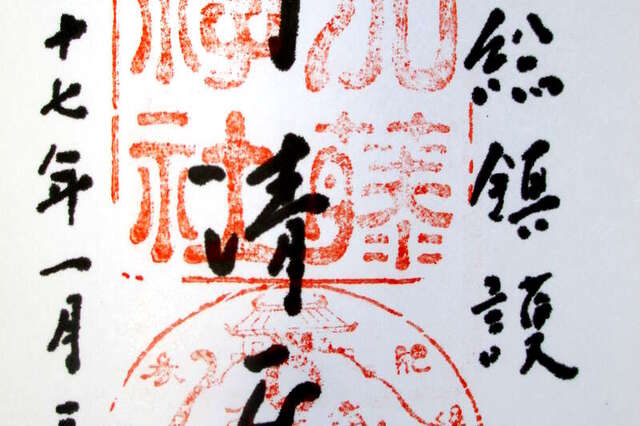 総鎮護
加藤
神社
清
十七年一月
肥